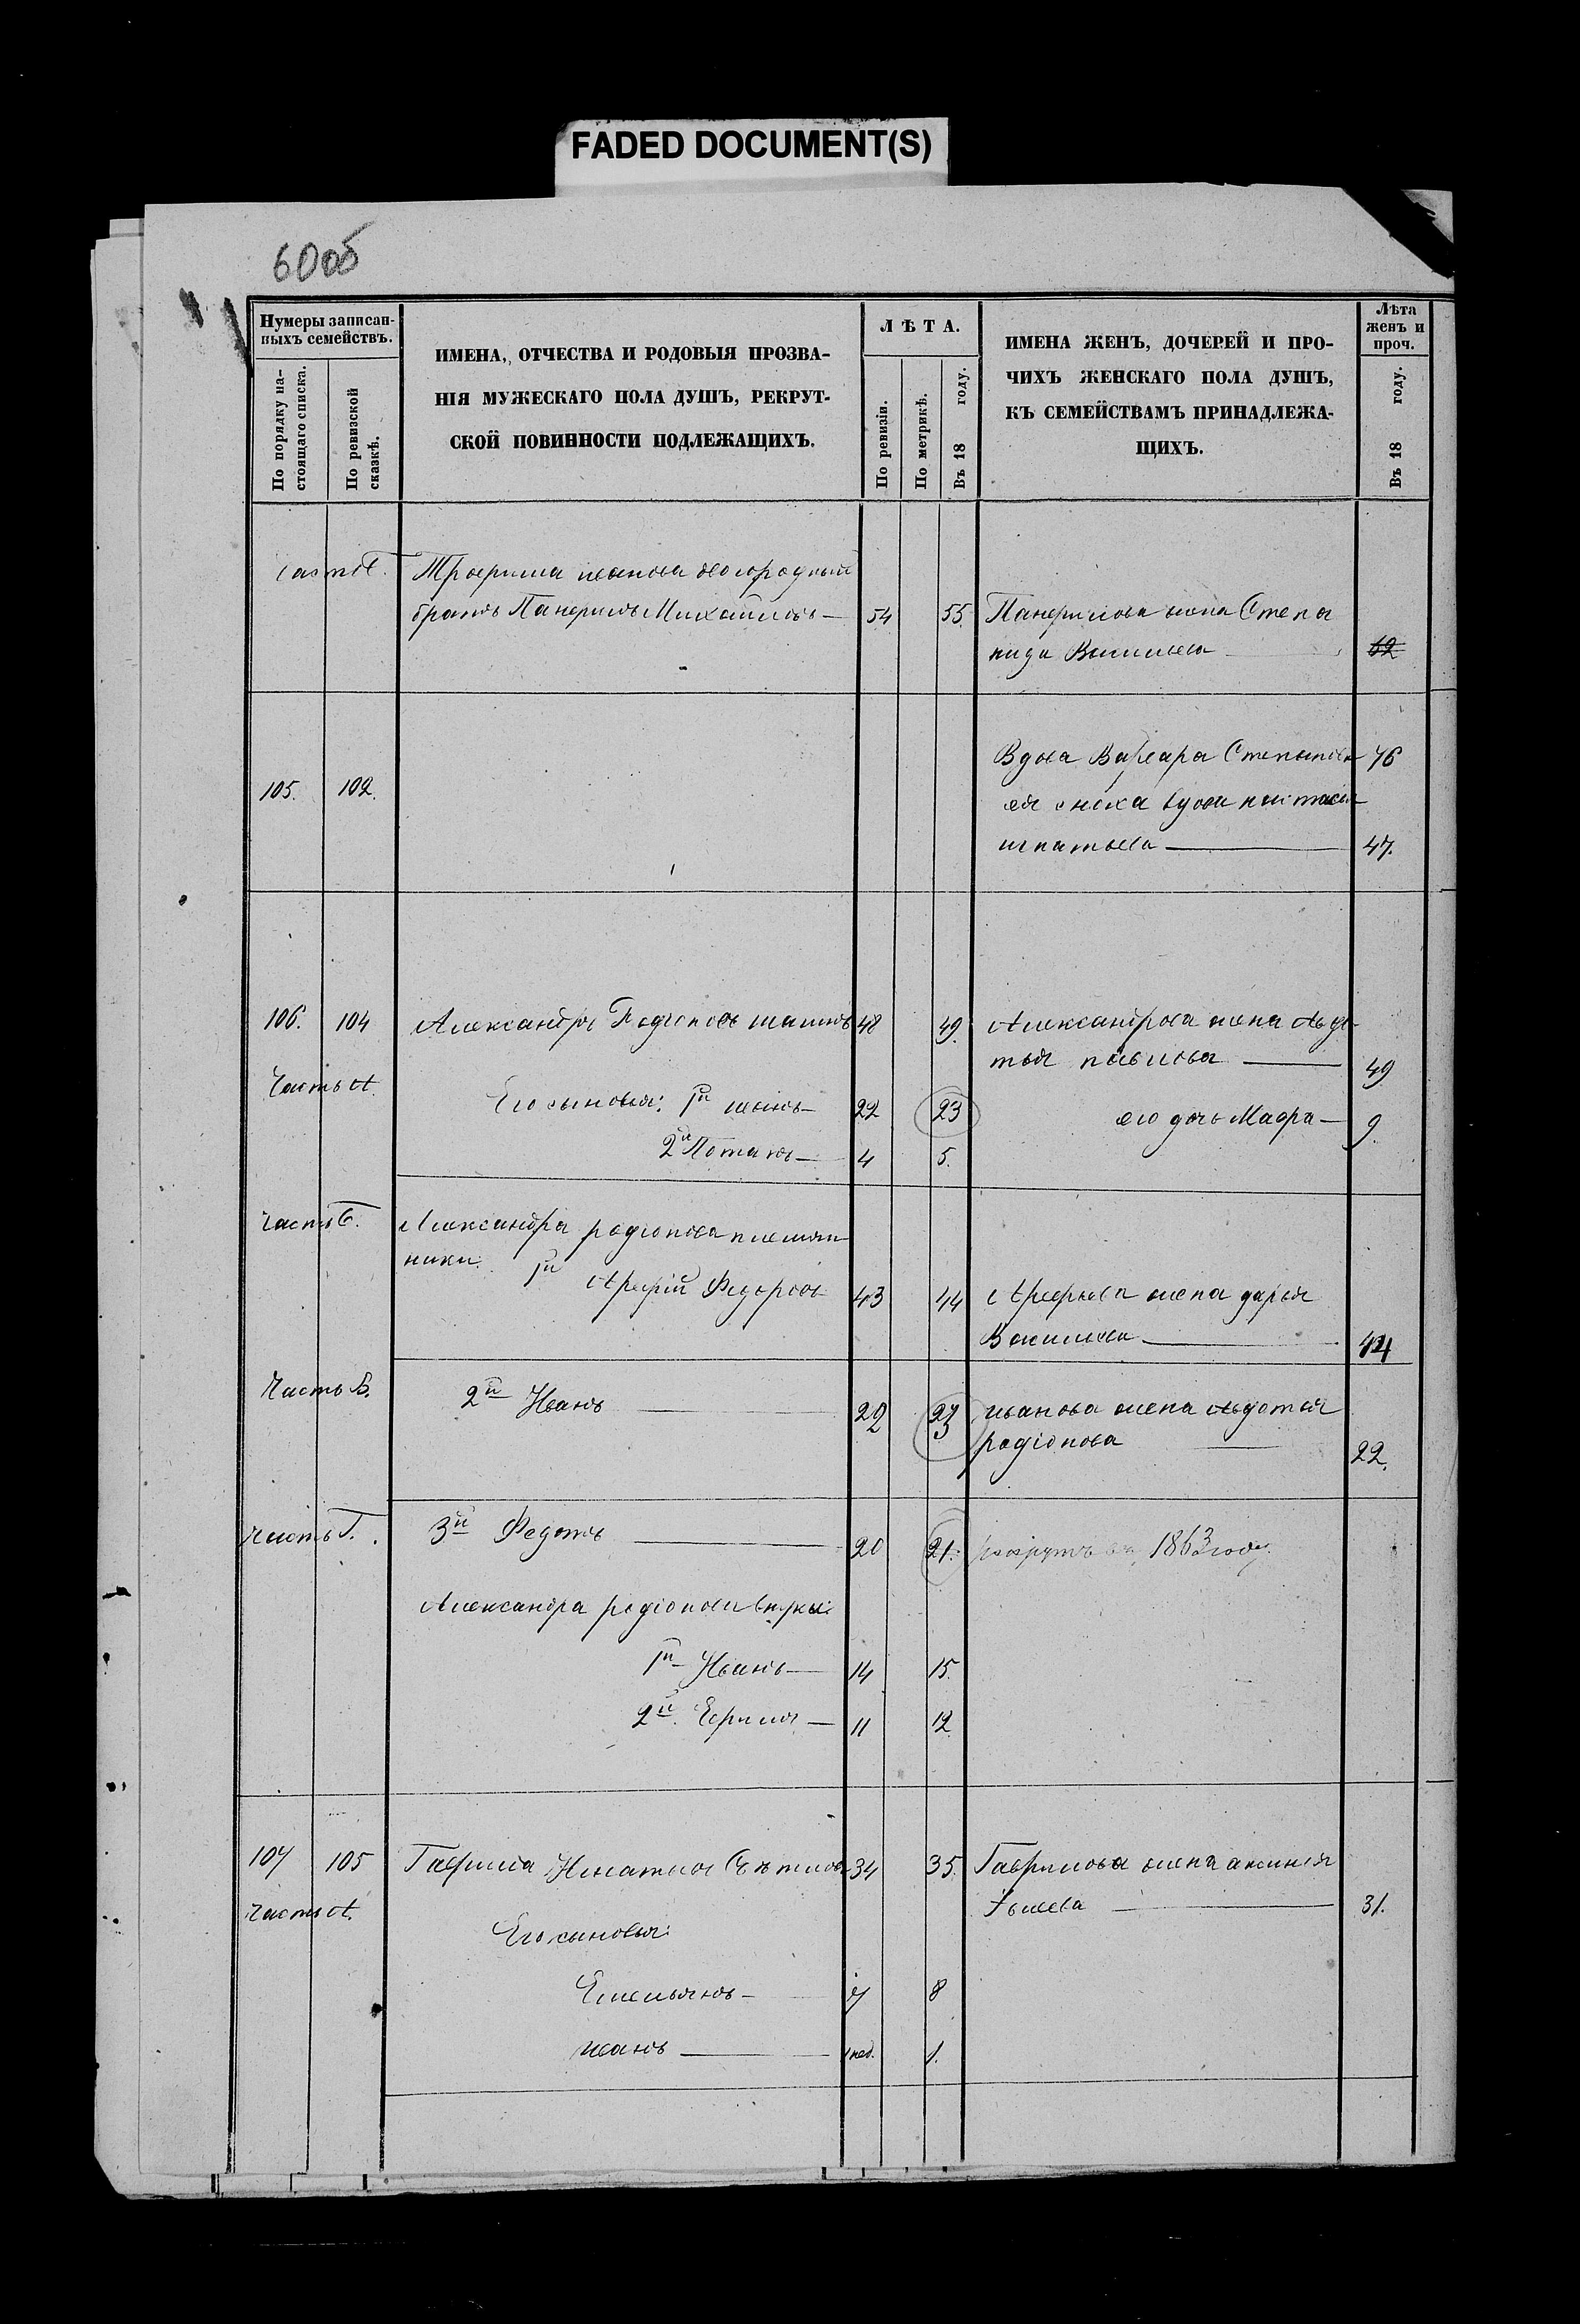 FADED DOCUMENT(S)
60об
Нумеры записан-
ныхъ семействъ.
По порядку на-
стоящаго списка.
По ревизской
сказкѣ.
ИМЕНА, ОТЧЕСТВА И РОДОВЫЯ ПРОЗВА-
НІЯ МУЖЕСКАГО ПОЛА ДУШЪ, РЕКРУТ-
СКОЙ ПОВИННОСТИ ПОДЛЕЖАЩИХЪ.
ЛѢТА.
По ревизіи.
По метрикѣ.
Въ 18 году.
ИМЕНА ЖЕНЪ, ДОЧЕРЕЙ И ПРО-
ЧИХЪ ЖЕНСКАГО ПОЛА ДУШЪ,
КЪ СЕМЕЙСТВАМЪ ПРИНАДЛЕЖА-
ЩИХЪ.
Лѣта
женъ и
проч.
Въ 18 году.
Трофима иванова двоюродный
братъ Панфилъ Михайловъ 54 55. Панфилова жена Степа
нида Васильева 62
Вдова Варвара Степанова 76
105. 102. ея сноха вдова настасья
игнатьева 47.
106. 104 Александръ Родіоновъ 48 49. Александрова жена Авдо-
тья павлова 49
Часть А.
Его сыновья: 1й иванъ 22 23 его дочь Мавра 9.
2й Потапъ 4 5.
Часть Б. Александра родіонова племян
ники. 1й Арефій Федоровъ 43 44 Арефьева жена дарья
Васильева 44
Часть В. 2й Иванъ 22 23 иванова жена авдотья
родіонова 22.
Часть Г. 3й Федотъ 20 21. рекрутъ въ 1863 году
Александра родіонова внуки:
1й Иванъ 14 15.
2й Ефимъ 11 12
107 105 Гаврила Игнатьевъ 34 35. Гаврилова жена аксинья
31.
Часть А.
Его сыновья:
Емельянъ 7 8
иванъ 1 нед. 1.